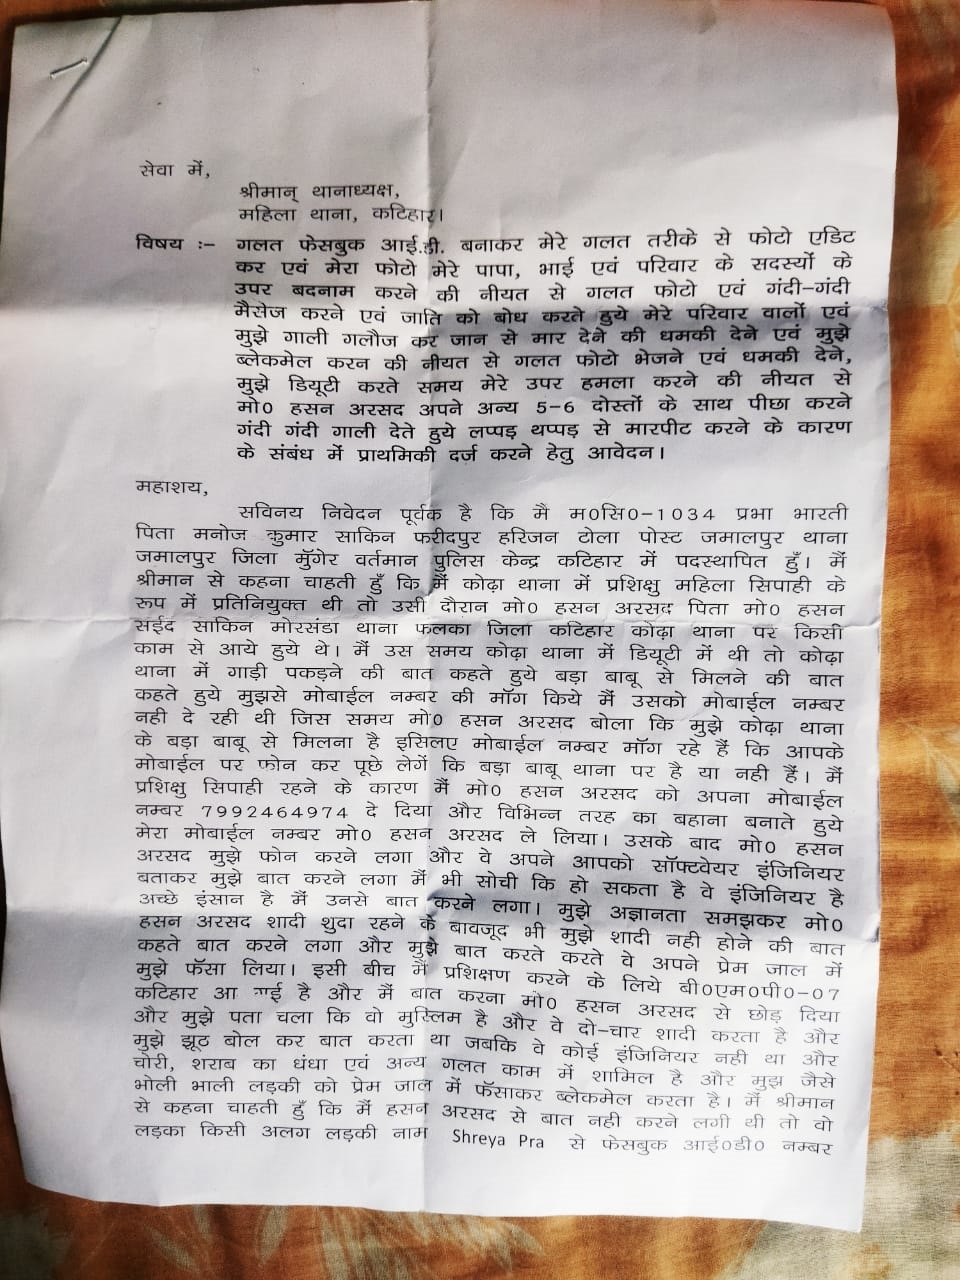 सेवा में,
श्रीमान् थानाध्यक्ष,
महिला थाना, कटिहार।
विषय :- गलत फेसबुक आई.डी. बनाकर मेरे गलत तरीके से फोटो एडिट
कर एवं मेरा फोटो मेरे पापा, भाई एवं परिवार के सदस्यों के
उपर बदनाम करने की नीयत से गलत फोटो एवं गंदी-गंदी
मैसेज करने एवं जाति को बोध करते हुये मेरे परिवार वालों एवं
मुझे गाली गलौज कर जान से मार देने की धमकी देने एवं मुझे
ब्लेकमेल करन की नीयत से गलत फोटो भेजने एवं धमकी देने,
मुझे डियूटी करते समय मेरे उपर हमला करने की नीयत से
मो0 हसन अरसद अपने अन्य 5-6 दोस्तों के साथ पीछा करने
गंदी गंदी गाली देते हुये लप्पड़ थप्पड़ से मारपीट करने के कारण
के संबंध में प्राथमिकी दर्ज करने हेतु आवेदन।
महाशय,
सविनय निवेदन पूर्वक है कि मै म0सि0-1034 प्रभा भारती
पिता मनोज कुमार साकिन फरीदपुर हरिजन टोला पोस्ट जमालपुर थाना
जमालपुर जिला मुँगेर वर्तमान पुलिस केन्द्र कटिहार में पदस्थापित हुँ। मैं
श्रीमान से कहना चाहती हुँ कि मैं कोढ़ा थाना में प्रशिक्षु महिला सिपाही के
रूप में प्रतिनियुक्त थी तो उसी दौरान मो0 हसन अरसद पिता मो0 हसन
सईद साकिन मोरसंडा थाना फलका जिला कटिहार कोढ़ा थाना पर किसी
काम से आये हुये थे। मैं उस समय कोढ़ा थाना में डियूटी में थी तो कोढ़ा
थाना में गाड़ी पकड़ने की बात कहते हुये बड़ा बाबू से मिलने की बात
कहते हुये मुझसे मोबाईल नम्बर की मॉग किये मैं उसको मोबाईल नम्बर
नही दे रही थी जिस समय मो0 हसन अरसद बोला कि मुझे कोढ़ा थाना
के बड़ा बाबू से मिलना है इसिलए मोबाईल नम्बर मॉग रहे हैं कि आपके
मोबाईल पर फोन कर पूछे लेगें कि बड़ा बाबू थाना पर है या नही हैं। मैं
प्रशिक्षु सिपाही रहने के कारण मैं मो0 हसन अरसद को अपना मोबाईल
नम्बर 7992464974 दे दिया और विभिन्न तरह का बहाना बनाते हुये
मेरा मोबाईल नम्बर मो0 हसन अरसद ले लिया। उसके बाद मो0 हसन
अरसद मुझे फोन करने लगा और वे अपने आपको सॉफ्टवेयर इंजिनियर
बताकर मुझे बात करने लगा मैं भी सोची कि हो सकता है वे इंजिनियर है
अच्छे इंसान है मैं उनसे बात करने लगा। मुझे अज्ञानता समझकर मो0
हसन अरसद शादी शुदा रहने के बावजूद भी मुझे शादी नही होने की बात
कहते बात करने लगा और मुझे बात करते करते वे अपने प्रेम जाल में
मुझे फॅसा लिया। इसी बीच मैं प्रशिक्षण करने के लिये बी0एम0पी0-07
कटिहार आ गई है और मैं बात करना मो0 हसन अरसद से छोड़ दिया
और मुझे पता चला कि वो मुस्लिम है और वे दो-चार शादी करता है और
मुझे झूठ बोल कर बात करता था जबकि वे कोई इंजिनियर नही था और
चोरी, शराब का धंधा एवं अन्य गलत काम में शामिल है और मुझ जैसे
भोली भाली लड़की को प्रेम जाल में फॅसाकर ब्लेकमेल करता है। मैं श्रीमान
से कहना चाहती हुँ कि मैं हसन अरसद से बात नही करने लगी थी तो वो
लड़का किसी अलग लड़की नाम Shreya Pra से फेसबुक आई0डी0 नम्बर